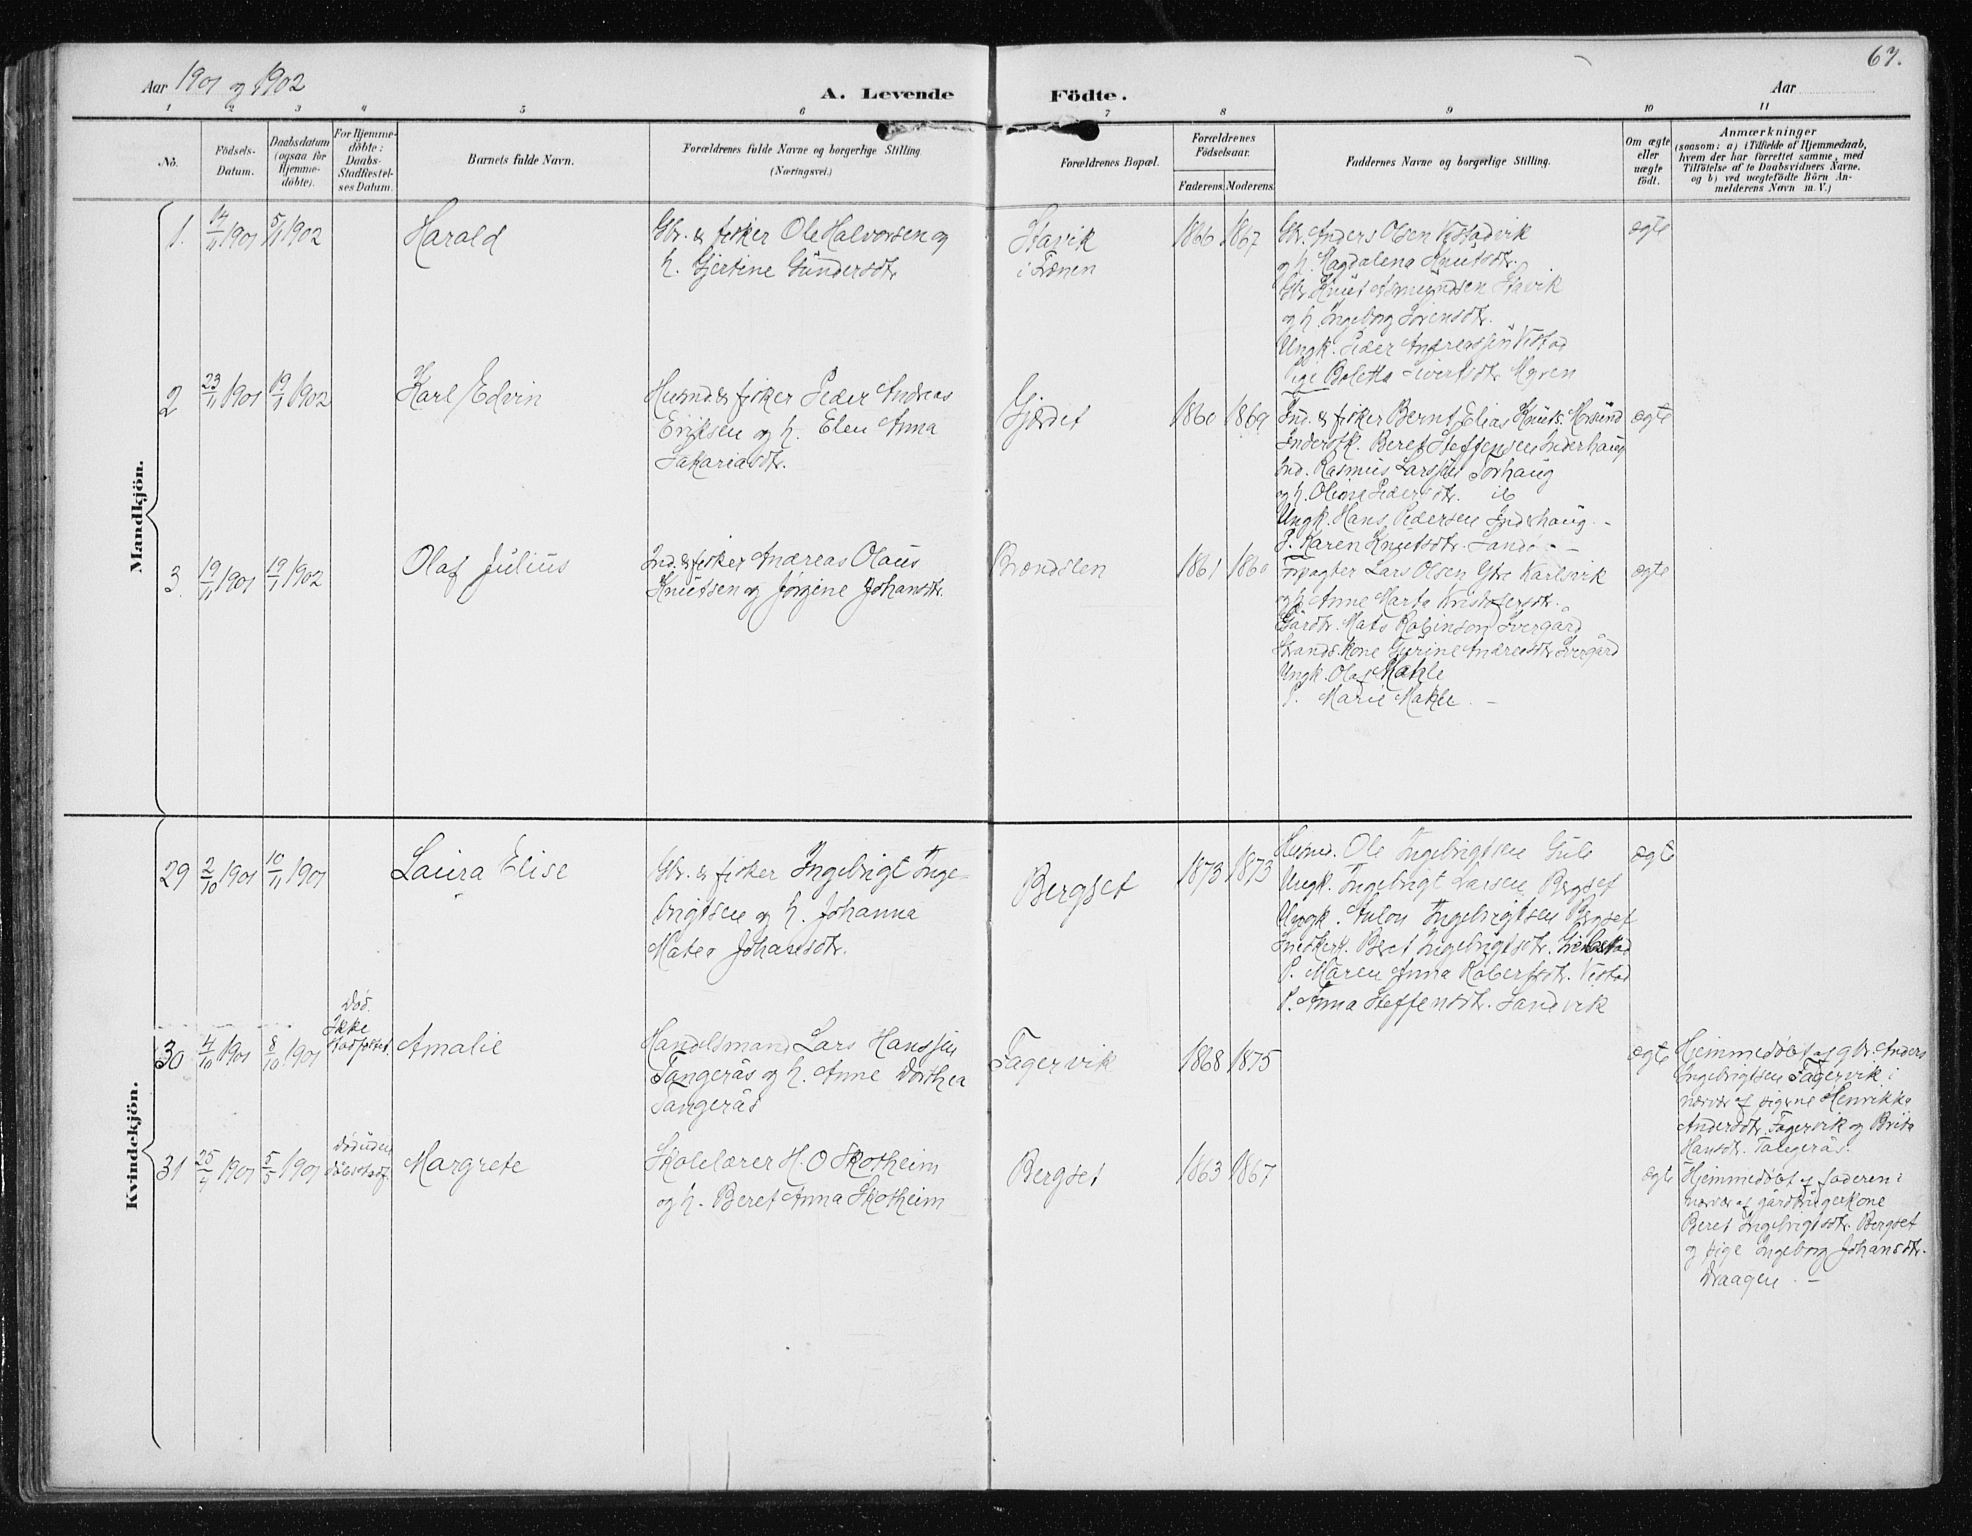 67.
Aar 1901 og 1902
A. Levende Födte.
Aar
1 2 3 4 5 6 7 8 9 10 11
No.
Födsels-
Datum.
Daabsdatum
(ogsaa for
Hjemme-
döbte).
For Hjemme-
döbte:
Daabs-
Stadfæstel-
ses Datum.
Barnets fulde Navn.
Forældrenes fulde Navne og borgerlige Stilling
(Næringsvei.)
Forældrenes Bopæl.
Forældrenes
Födselsaar.
Faderens. Moderens.
Faddernes Navne og borgerlige Stilling.
Om ægte
eller
uægte
födt.
Anmærkninger
(saasom: a) i Tilfælde af Hjemmedaab,
hvem der har forrettet samme, med
Tilföielse af to Daabsvidners Navne,
og b) ved uægtefödte Börn An-
melderens Navn m. V.)
Mandkjön.
1. 14/11 1901 5/1 1902
Harald
Gbr. & fisker Ole Halvorsen og
h. Gjertine Gundersdtr
Stavik
i Fænen
1866 1867
Gbr. Anders Olsen Vestadvik
og h. Magdalena Knutsdtr.
Gbr Knut Asmundsen Stavik
og h. Ingeborg Sørensdtr.
Ungk. Peder Andreassen Vestad
Pige Boletta Sivertsdtr Myren
ægte
2 23/11 1901 19/1 1902
Karl Edvin
Husmd & fisker Peder Andreas
Eriksen og h. Elen Anna
Sakariasdtr.
Gjerdet
1860 1869
Ind. & fisker Bernt Elias Knuts.
Beret Steffensen Inderhaug
Ind. Rasmus Larssen Torhaug
og h. Olina Pedersdtr. ib
Ungk. Hans Pedersen Inderhaug -
P. Karen Knutsdtr. Sandø - -
ægte
3 19/11 1901 19/1 1902
Olaf Julius
Ind. & fisker Andreas Olaus
Knutsen og Jørgine Johansdtr.
Brændslen
1861 1860
Forpagter Lars Olsen Ytre Karlsvik
og h. Anne Marta Kristofersdtr.
Gårdbr. Mats Robinson Ivergård
Gurine Andreasdtr Ivergård
Ungk. Olaf Mahle
P. Marie Mahle. -
ægte
Kvindekjön.
29 2/10 1901 10/11 1901
Laura Elise
Gbr. & fisker Ingebrigt Inge-
brigtsen og h. Johanna
Matea Johansdtr.
Bergset
1873 1873
Husmd. Ole Ingebrigtsen Gule
Ungk. Ingebrigt Larsen Bergset
Ungk. Anton Ingebrigtsen Bergset
Beret Ingebrigtsdtr.
P. Maren Anna Robertsdtr. Vestad
P. Anna Steffensdtr. Sandvik
ægte
30 4/10 1901 8/10 1901
Død.
Ikke
stadfæstet.
Amalie
Handelsmand Lars Hanssen
Tangerås og h. Anne Dorthea
Tangerås
Fagervik
1868 1875
ægte
Hjemmedøbt af gbr. Anders
Ingebrigtsen Fagervik i
nærvær af pigerne Henrikke
Andersdtr. Fagervik og Brita
Hansdtr. Tangerås.
31 25/4 1901 5/5 1901
Død uden
Margrete
Skolelærer H. O Skotheim
og h. Beret Anna Skotheim
Bergset
1863 1867
ægte
Hjemmedøbt af faderen i
nærvær af gårdbrugerkone
Beret Ingebrigtsdtr. Bergset
og pige Ingeborg Johansdtr.
Draagen. -